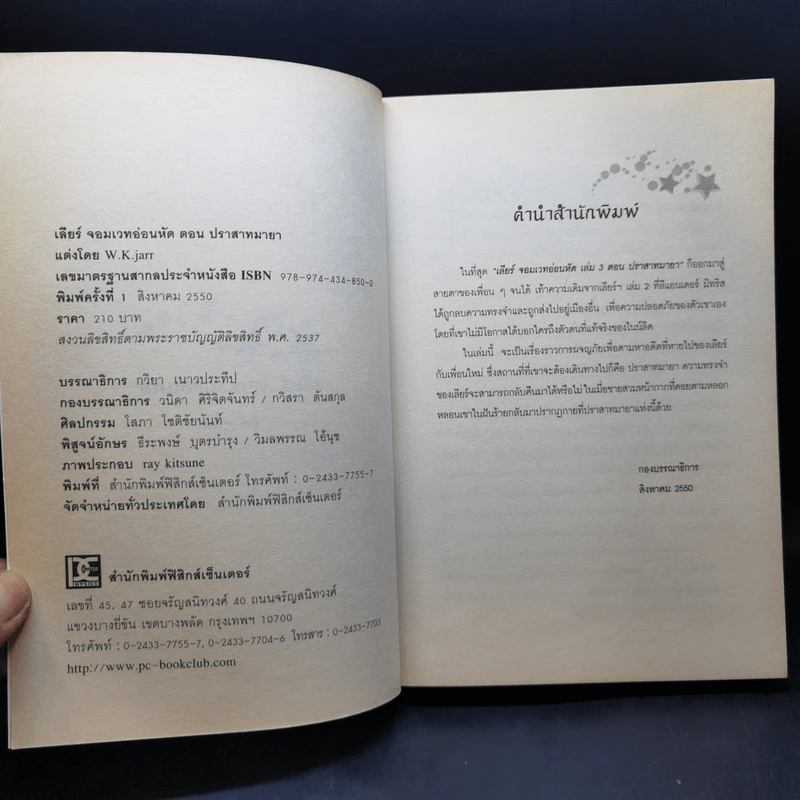 เลียร์ จอมเวทอ่อนหัด ตอน ปราสาทมายา
แต่งโดย W.K.jarr
เลขมาตรฐานสากลประจำหนังสือ ISBN 978-974-434-850-0
พิมพ์ครั้งที่ 1 สิงหาคม 2550
ราคา 210 บาท
สงวนลิขสิทธิ์ตามพระราชบัญญัติลิขสิทธิ์ พ.ศ. 2537
บรรณาธิการ กวิยา เนาวประทีป
กองบรรณาธิการ วนิดา ศิริจิตจันทร์ / กวิสรา ตันสกุล
ศิลปกรรม โสภา โชติชัยนันท์
พิสูจน์อักษร ธีระพงษ์ บุตรบำรุง / วิมลพรรณ โอ้นุช
ภาพประกอบ ray kitsune
พิมพ์ที่ สำนักพิมพ์ฟิสิกส์เซ็นเตอร์ โทรศัพท์ : 0-2433-7755-7
จัดจำหน่ายทั่วประเทศโดย สำนักพิมพ์ฟิสิกส์เซ็นเตอร์
สำนักพิมพ์ฟิสิกส์เซ็นเตอร์
เลขที่ 45, 47 ซอยจรัญสนิทวงศ์ 40 ถนนจรัญสนิทวงศ์
แขวงบางยี่ขัน เขตบางพลัด กรุงเทพฯ 10700
โทรศัพท์ : 0-2433-7755-7, 0-2433-7704-6 โทรสาร : 0-2433-7703
http://www.pc-bookclub.com
คำนำสำนักพิมพ์
ในที่สุด "เลียร์ จอมเวทอ่อนหัด เล่ม 3 ตอน ปราสาทมายา" ก็ออกมาสู่
สายตาของเพื่อน ๆ จนได้ เท้าความเดิมจากเลียร์ฯ เล่ม 2 ที่ลีแอนเดอร์ มิทริส
ได้ถูกลบความทรงจำและถูกส่งไปอยู่เมืองอื่น เพื่อความปลอดภัยของตัวเขาเอง
โดยที่เขาไม่มีโอกาสได้บอกใครถึงตัวตนที่แท้จริงของไนน์ลิค
ในเล่มนี้ จะเป็นเรื่องราวการผจญภัยเพื่อตามหาอดีตที่หายไปของเลียร์
กับเพื่อนใหม่ ซึ่งสถานที่ที่เขาจะต้องเดินทางไปก็คือ ปราสาทมายา ความทรงจำ
ของเลียร์จะสามารถกลับคืนมาได้หรือไม่ ในเมื่อชายสวมหน้ากากที่คอยตามหลอก
หลอนเขาในฝันร้ายกลับมาปรากฏกายที่ปราสาทมายาแห่งนี้ด้วย
กองบรรณาธิการ
สิงหาคม 2550